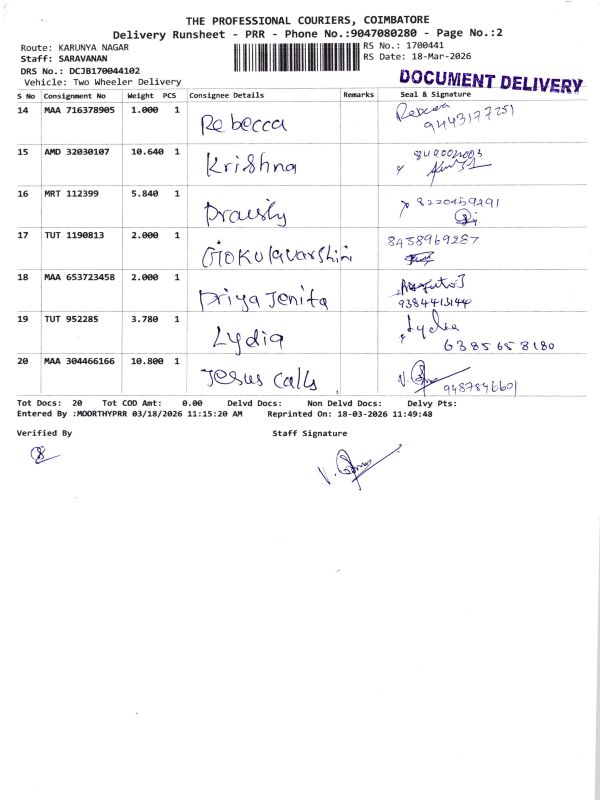 THE PROFESSIONAL COURIERS, COIMBATORE
Delivery Runsheet - PRR - Phone No.:9047080280 - Page No.:2
Route: KARUNYA NAGAR
RS No.: 1700441
Staff: SARAVANAN
RS Date: 18-Mar-2026
DRS No.: DCJB170044102
DOCUMENT DELIVERY
Vehicle: Two Wheeler Delivery
S No Consignment No Weight PCS Consignee Details Remarks Seal & Signature
14 MAA 716378905 1.000 1 Rebecca Rebecca
9443177251
15 AMD 32030107 10.640 1 Krishna
16 MRT 112399 5.840 1 8220459291
17 TUT 1190813 2.000 1 Gokulavarshini 8438969287
18 MAA 653723458 2.000 1 Priya Jenita
9384413144
19 TUT 952285 3.780 1 Lydia Lydia
6385658180
20 MAA 304466166 10.800 1 Jesus Calls
9487846601
Tot Docs: 20 Tot COD Amt: 0.00 Delvd Docs: Non Delvd Docs: Delvy Pts:
Entered By :MOORTHYPRR 03/18/2026 11:15:20 AM Reprinted On: 18-03-2026 11:49:48
Verified By Staff Signature